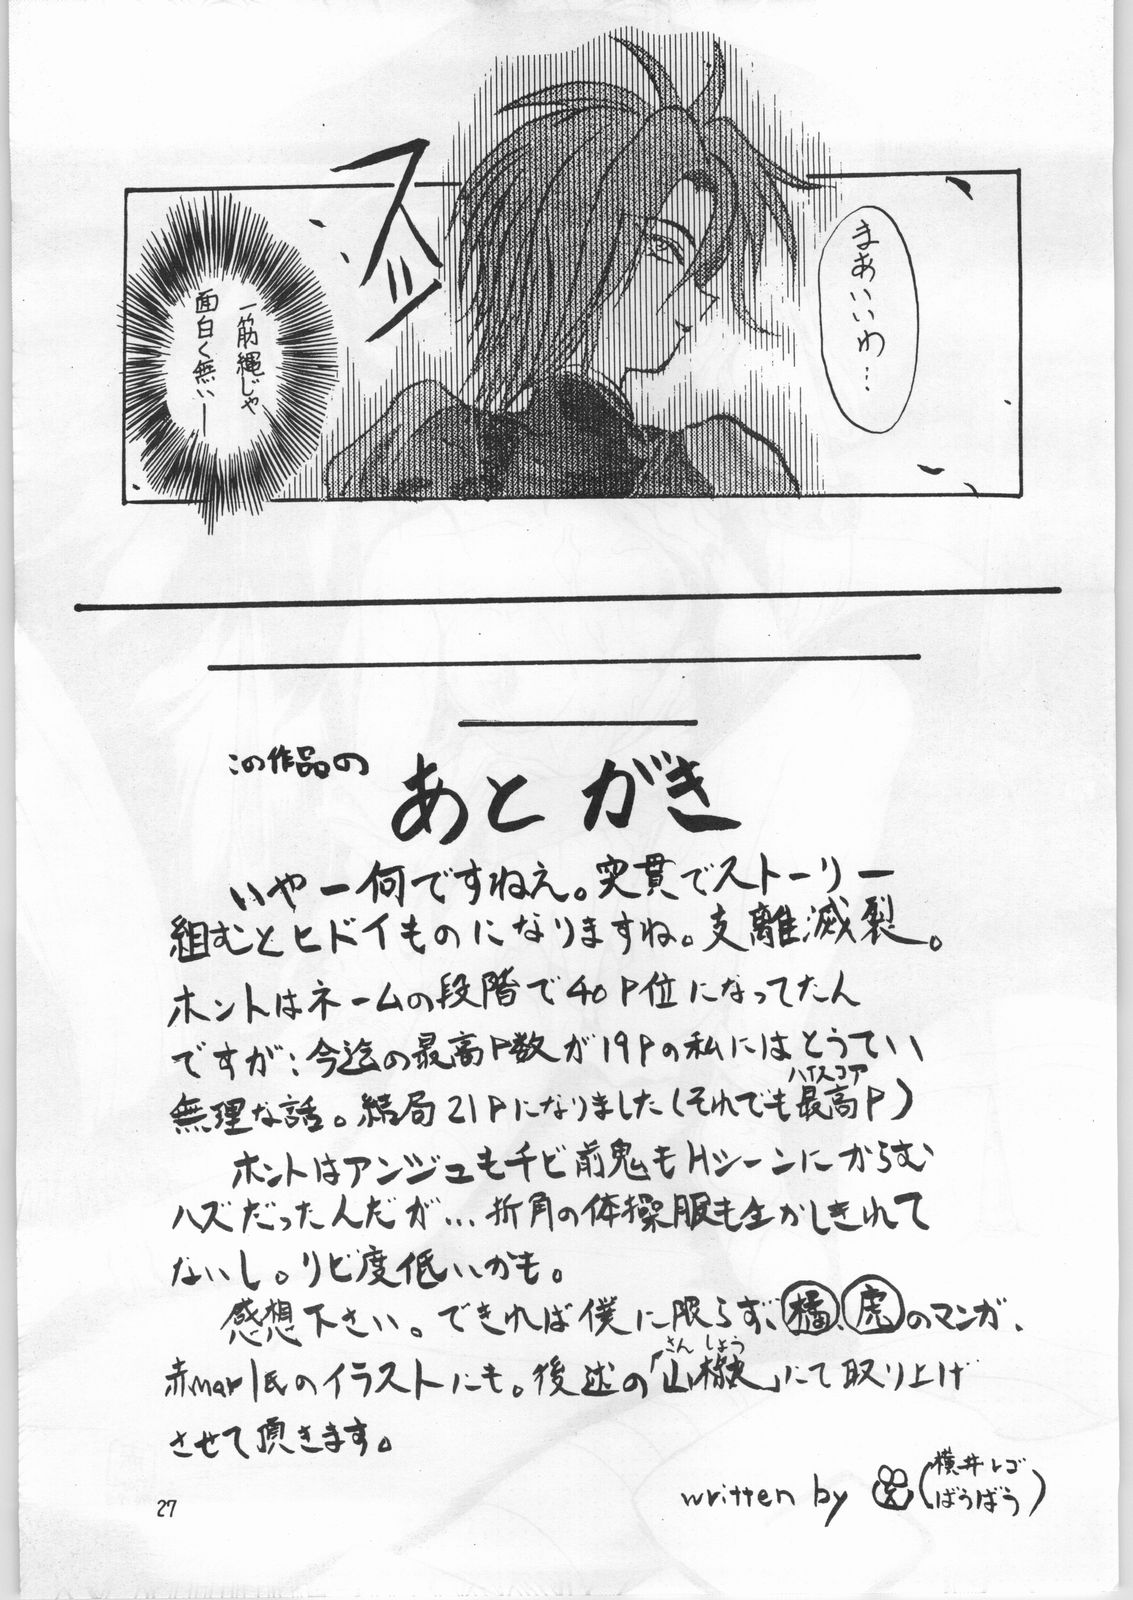 まあいいわ…
スッ
一筋縄じゃ
面白く無いー
この作品の
あとがき
いやー何ですねえ。突貫でストーリー
組むとヒドイものになりますね。支離滅裂。
ホントはネームの段階で40P位になってたん
ですが…今迄の最高P数が19Pの私にはとうてい
無理な話。結局21Pになりました(それでも最高P)
ハイスコア
ホントはアンジュも千ビ前鬼もHシーンにからむ
ハズだったんだが…折角の体操服も生かしきれて
ないし。リビ度低いかも。
感想下さい。できれば僕に限らず、橘、虎のマンガ、
赤mar氏のイラストにも。後述の「山椒」にて取り上げ
さんしょう
させて頂きます。
written by
(横井レゴ
ばうばう)
27